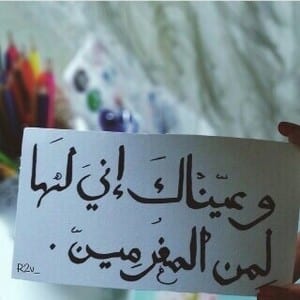 وعيناكَ إنيَ لها
لمن المغرمينَ .
R2v_